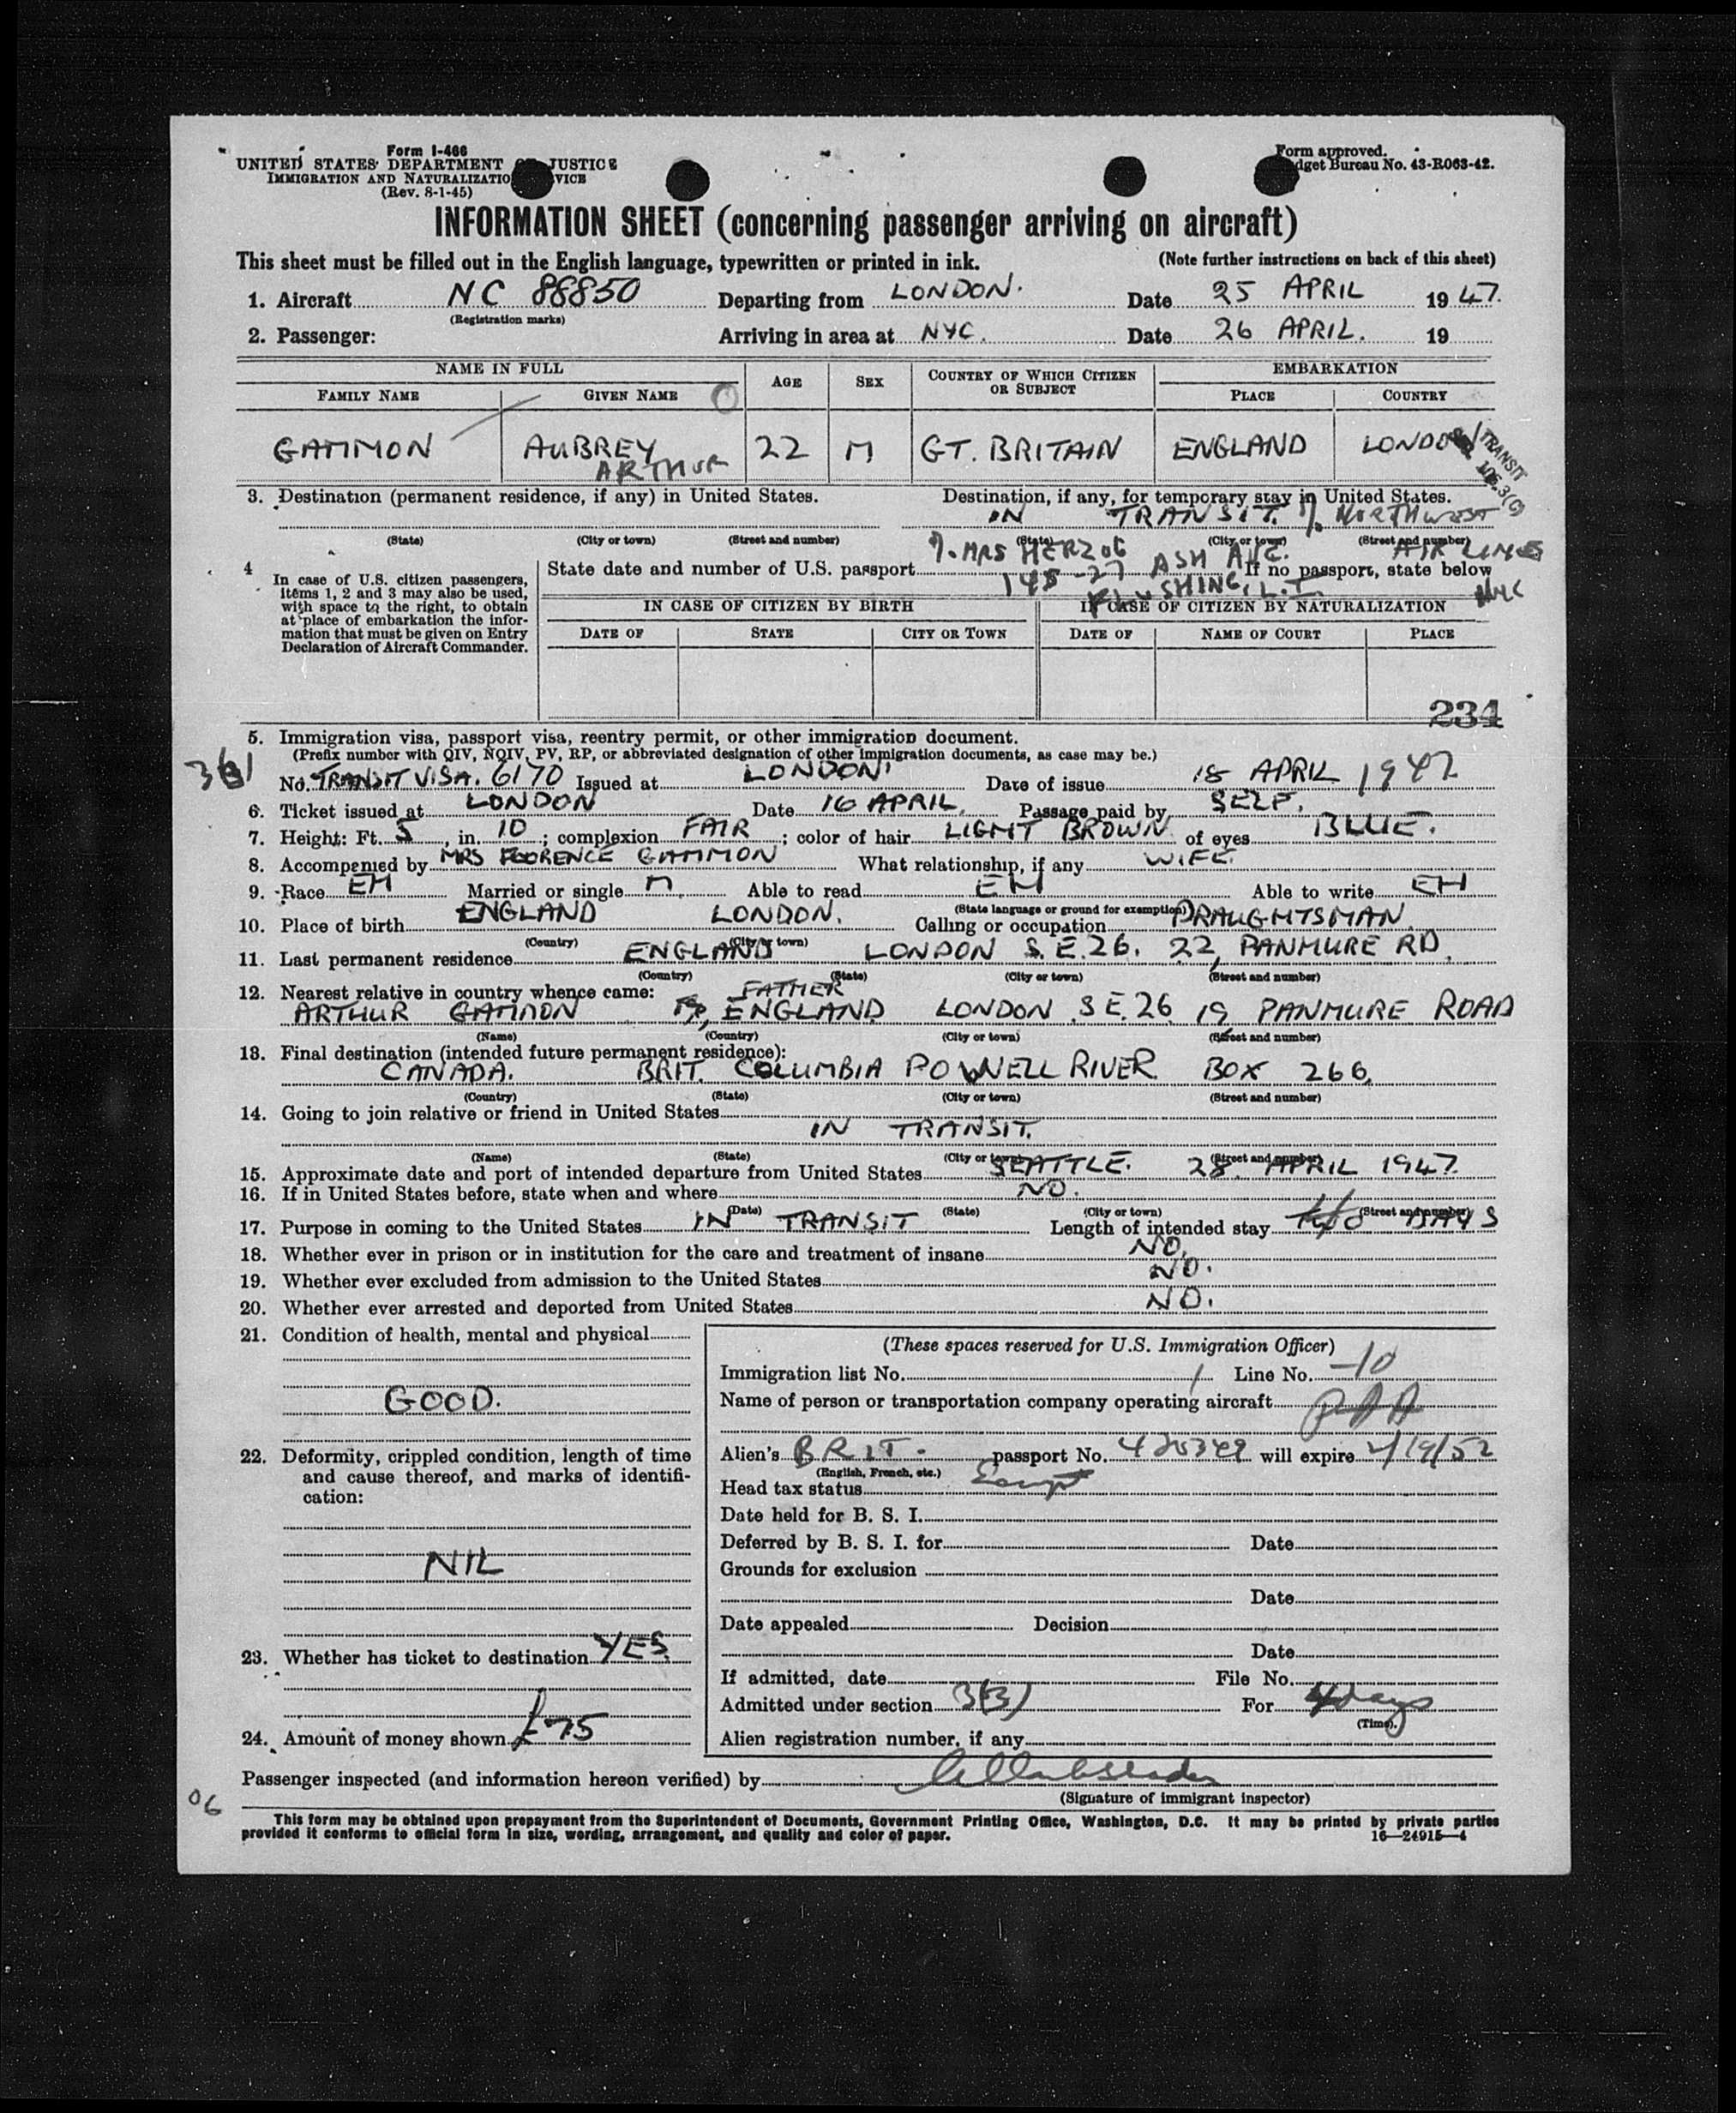 Form I-466
UNITED STATES DEPARTMENT JUSTICE
IMMIGRATION AND NATURALIZATIO VICE
(Rev. 8-1-45)
Form approved.
dget Bureau No. 43-R063-42.
INFORMATION SHEET (concerning passenger arriving on aircraft)
This sheet must be filled out in the English language, typewritten or printed in ink. (Note further instructions on back of this sheet)
1. Aircraft NC 88850 Departing from LONDON. Date 25 APRIL 1947.
(Registration marks)
2. Passenger: Arriving in area at NYC. Date 26 APRIL. 19
NAME IN FULL AGE SEX COUNTRY OF WHICH CITIZEN OR SUBJECT EMBARKATION
FAMILY NAME GIVEN NAME PLACE COUNTRY
GAMMON AUBREY ARTHUR 22 M GT. BRITAIN ENGLAND LONDON
TRANSIT
3. Destination (permanent residence, if any) in United States. Destination, if any, for temporary stay in United States.
IN TRANSIT. % NORTHWEST
(State) (City or town) (Street and number) (State) (City or town) (Street and number)
AIR LINES
NYC
%. MRS HERZOG ASH AVE.
145-27
FLUSHING, L.I.
4 In case of U.S. citizen passengers, items 1, 2 and 3 may also be used, with space to the right, to obtain at place of embarkation the information that must be given on Entry Declaration of Aircraft Commander.
State date and number of U.S. passport If no passport, state below
IN CASE OF CITIZEN BY BIRTH IN CASE OF CITIZEN BY NATURALIZATION
DATE OF STATE CITY OR TOWN DATE OF NAME OF COURT PLACE
234
5. Immigration visa, passport visa, reentry permit, or other immigration document.
(Prefix number with QIV, NQIV, PV, RP, or abbreviated designation of other immigration documents, as case may be.)
No. TRANSIT VISA. 6170 Issued at LONDON Date of issue 18 APRIL 1947
6. Ticket issued at LONDON Date 16 APRIL. Passage paid by SELF.
7. Height: Ft. 5, in. 10; complexion FAIR; color of hair LIGHT BROWN of eyes BLUE.
8. Accompanied by MRS FLORENCE GAMMON What relationship, if any WIFE.
9. Race EH Married or single M Able to read EH Able to write EH
(State language or ground for exemption)
10. Place of birth ENGLAND LONDON. Calling or occupation DRAUGHTSMAN.
(Country) (City or town)
11. Last permanent residence ENGLAND LONDON S.E.26. 22, PANMURE RD.
(Country) (State) (City or town) (Street and number)
12. Nearest relative in country whence came: FATHER
ARTHUR GAMMON ENGLAND LONDON S.E.26 19 PANMURE ROAD
(Name) (Country) (City or town) (Street and number)
13. Final destination (intended future permanent residence):
CANADA. BRIT. COLUMBIA POWELL RIVER BOX 266.
(Country) (State) (City or town) (Street and number)
14. Going to join relative or friend in United States
IN TRANSIT.
(Name) (State) (City or town) (Street and number)
15. Approximate date and port of intended departure from United States SEATTLE. 28 APRIL 1947.
16. If in United States before, state when and where NO.
(Date) (State) (City or town) (Street and number)
17. Purpose in coming to the United States IN TRANSIT Length of intended stay DAYS
18. Whether ever in prison or in institution for the care and treatment of insane NO.
19. Whether ever excluded from admission to the United States NO.
20. Whether ever arrested and deported from United States NO.
21. Condition of health, mental and physical
GOOD.
22. Deformity, crippled condition, length of time and cause thereof, and marks of identification:
NIL
23. Whether has ticket to destination YES.
24. Amount of money shown £75
(These spaces reserved for U.S. Immigration Officer)
Immigration list No. 1 Line No. 10
Name of person or transportation company operating aircraft PAA
Alien's BRIT. passport No. will expire
(English, French, etc.)
Head tax status
Date held for B. S. I.
Deferred by B. S. I. for Date
Grounds for exclusion
Date
Date appealed Decision
Date
If admitted, date File No.
Admitted under section 3(3) For 4 days
(Time).
Alien registration number, if any
Passenger inspected (and information hereon verified) by
(Signature of immigrant inspector)
06
This form may be obtained upon prepayment from the Superintendent of Documents, Government Printing Office, Washington, D.C. It may be printed by private parties
provided it conforms to official form in size, wording, arrangement, and quality and color of paper. 16—24915-4